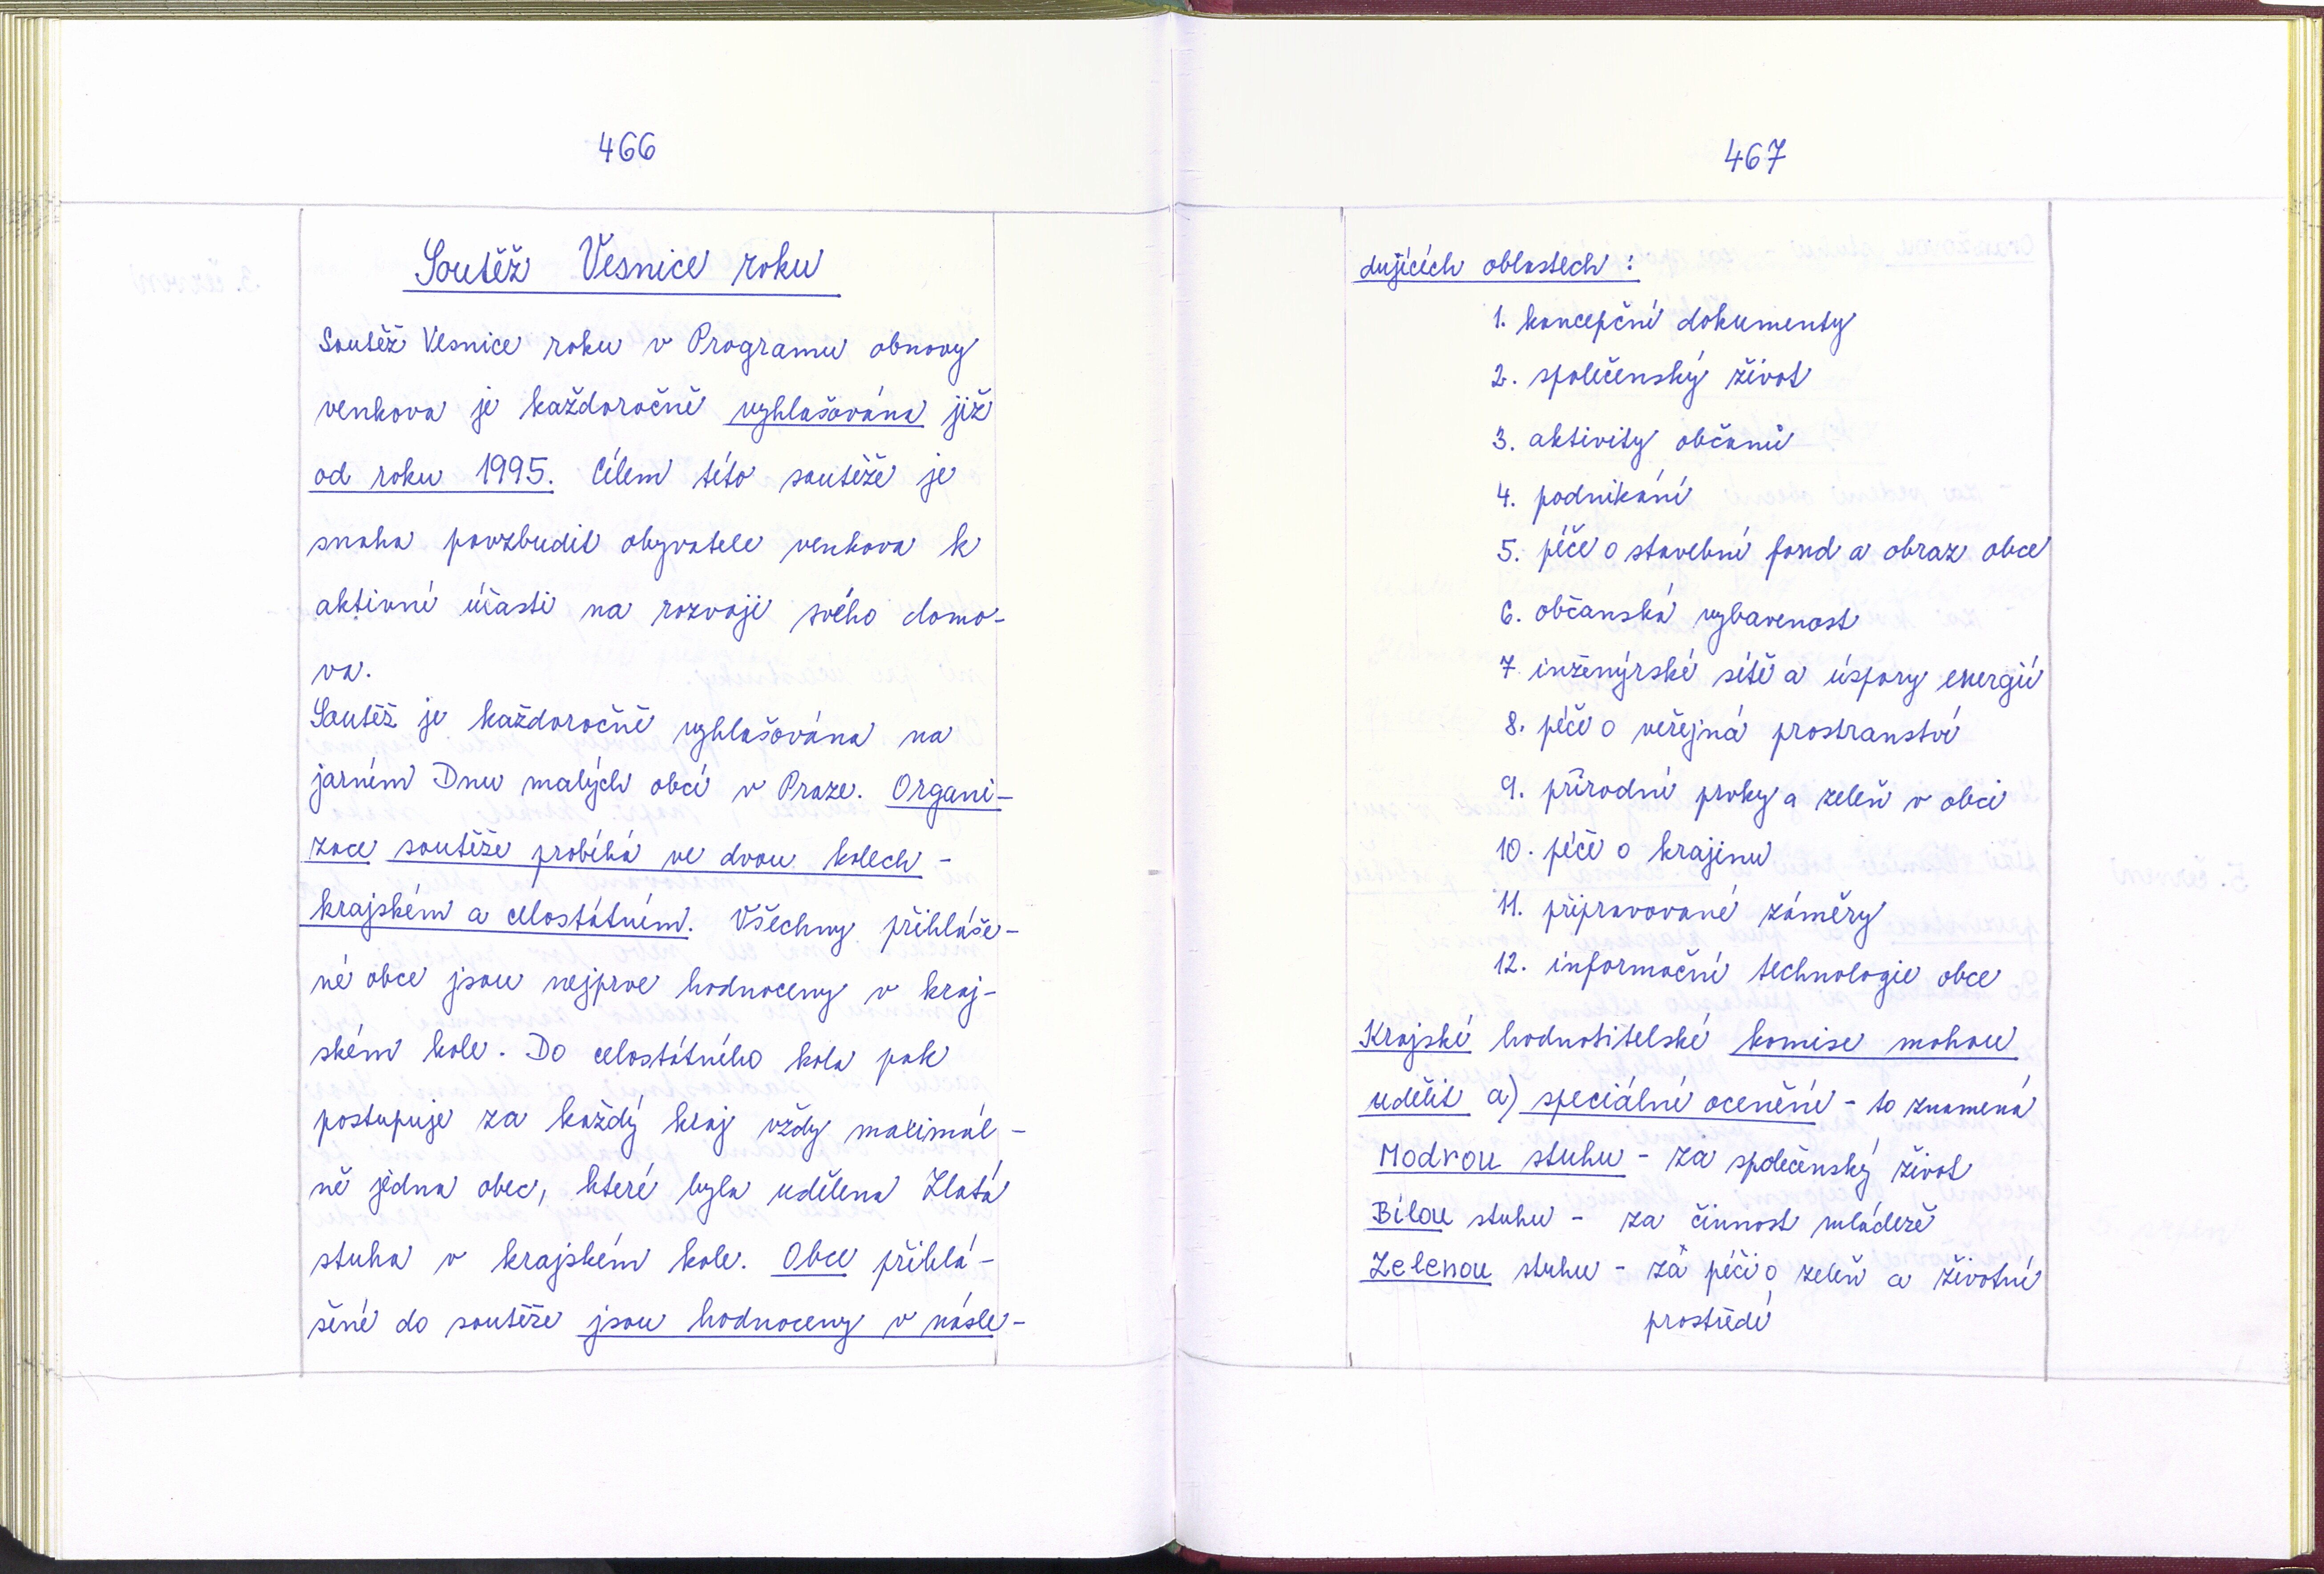 466
Soutěž Vesnice roku
Soutěž Vesnice roku v Programu obnovy
venkova je každoročně vyhlašována již
od roku 1995. Cílem této soutěže je
snaha povzbudit obyvatele venkova k
aktivní účasti na rozvoji svého domo-
va.
Soutěž je každoročně vyhlašována na
jarním Dnu malých obcí v Praze. Organi-
zace soutěže probíhá ve dvou kolech -
krajském a celostátním. Všechny přihláše-
né obce jsou nejprve hodnoceny v kraj-
ském kole. Do celostátního kola pak
postupuje za každý kraj vždy maximál-
ně jedna obec, které byla udělena Zlatá
stuha v krajském kole. Obce přihlá-
šené do soutěže jsou hodnoceny v násle-
467
dujících oblastech :
1. koncepční dokumenty
2. společenský život
3. aktivity občanů
4. podnikání
5. péče o stavební fond a obraz obce
6. občanská vybavenost
7 inženýrské sítě a úspory energií
8. péče o veřejná prostranství
9. přírodní prvky a zeleň v obci
10. péče o krajinu
11. připravované záměry
12. informační technologie obce
Krajské hodnotitelské komise mohou
udělit a) speciální ocenění - to znamená
Modrou stuhu - za společenský život
Bílou stuhu - za činnost mládeže
Zelenou stuhu - za péči o zeleň a životní
prostředí